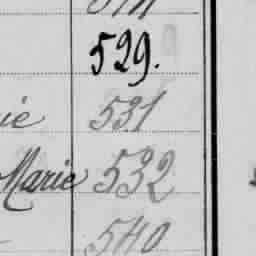 529.
ie 531
Marie 532
540